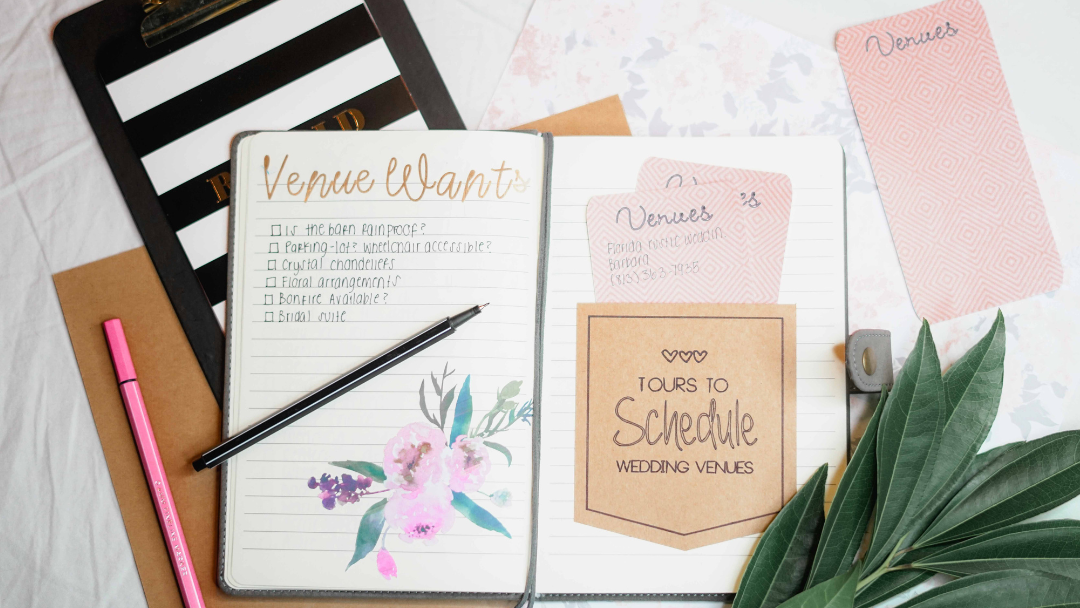 Venue Wants
Is the barn rainproof?
Parking-lot? Wheelchair accessible?
Crystal chandeliers
Floral arrangements
Bonfire Available?
Bridal suite
Venues
Venues 's
Florida
Barbara
TOURS TO
Schedule
WEDDING VENUES